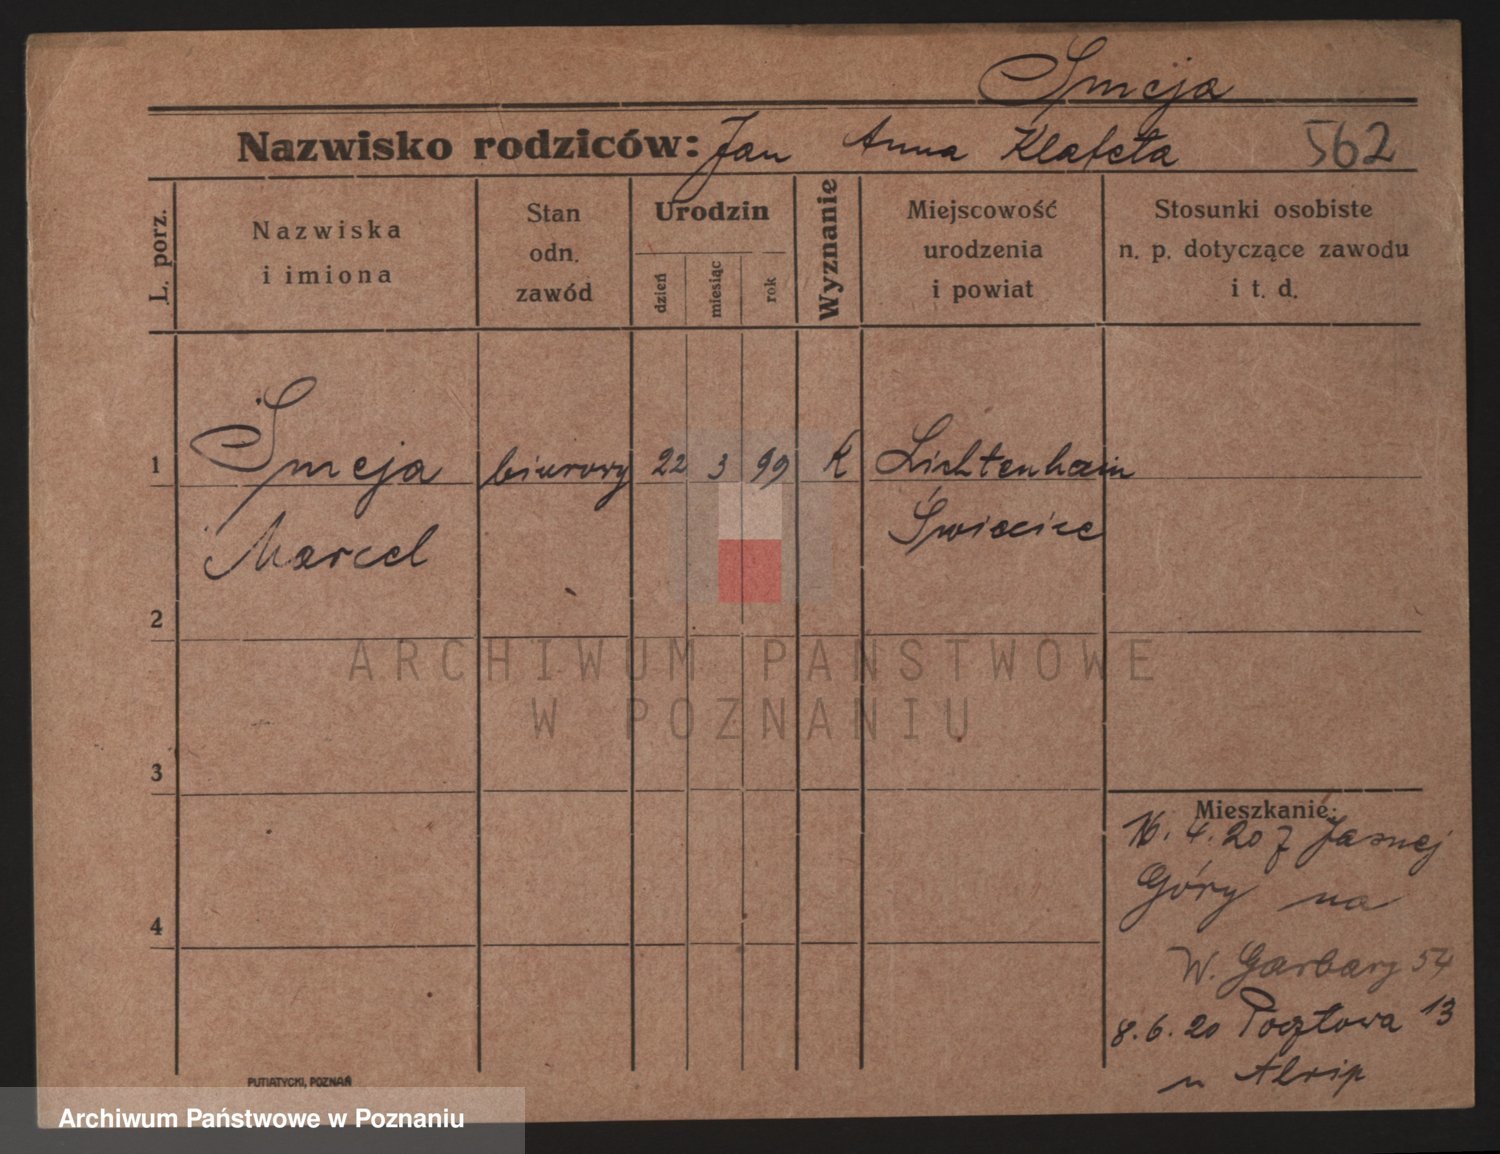 Smeja
Nazwisko rodziców: Jan Anna Klafeta 562
L. porz.
Nazwiska
i imiona
Stan
odn.
zawód
Urodzin
dzień
miesiąc
rok
Wyznanie
Miejscowość
urodzenia
i powiat
Stosunki osobiste
n. p. dotyczące zawodu
i t. d.
1 Smeja biurowy 22 3 99 K Lichtenhain
Marcel
2
3
4
Mieszkanie:
16. 4. 20 z Jasnej
Góry na
W. Garbary 54
8. 6. 20 Pocztowa 13
PUTIATYCKI, POZNAŃ
ARCHIWUM PAŃSTWOWE
W POZNANIU
Archiwum Państwowe w Poznaniu